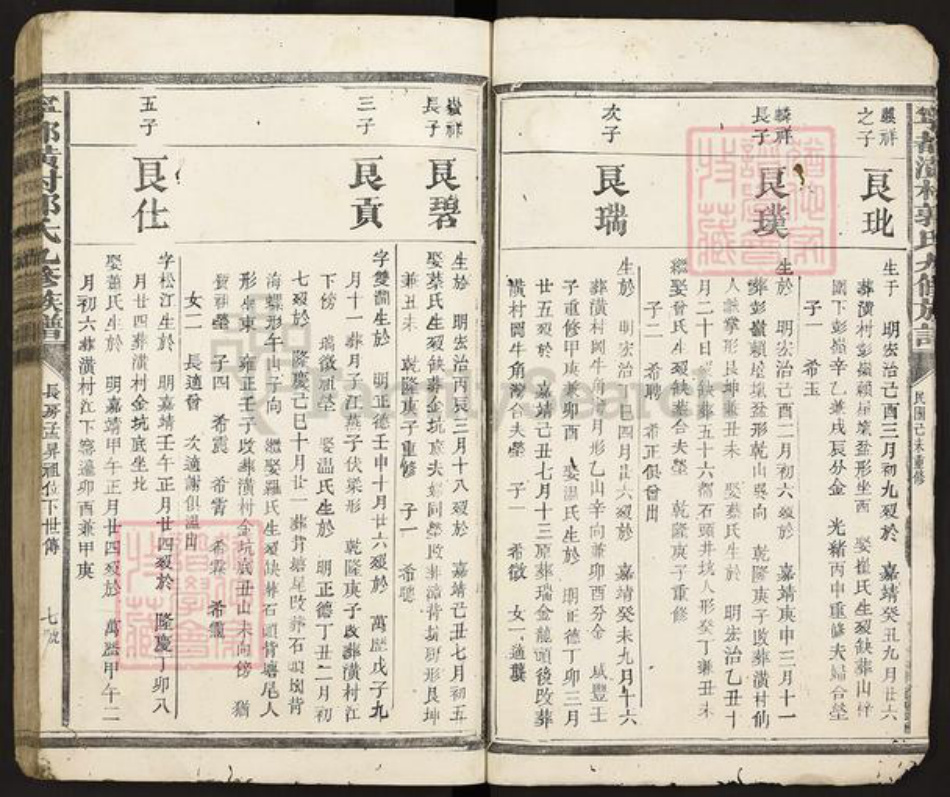 寧都潢村郭氏九修族譜
民國己未重修
麟祥
之子
良玭
生于 明宏治己酉三月初九歿於 嘉靖癸丑九月廿六
葬潢村彭嶺賴屋塅盆形坐酉 娶崔氏生歿缺葬山梓
園下彭嶺辛乙兼戌辰分金 光緒丙申重修夫婦合塋
子一 希玉
麟祥
長子
良璞
生於 明宏治己酉二月初六歿於 嘉靖庚申三月十一
葬彭嶺賴屋塅盆形乾山巽向 乾隆庚子改葬潢村仙
人 掌形艮坤兼丑未 娶蔡氏生於 明宏治乙丑十
月二十日歿缺葬五十六都石頭井垅人形癸丁兼丑未
繼娶曾氏生歿缺葬合夫塋 乾隆庚子重修
子二 希聘 希正俱曾出
次子
良瑞
生於 明宏治丁巳四月廿六歿於 嘉靖癸未九月十六
葬潢村岡牛角灣月形乙山辛向兼卯酉分金 咸豐壬
子重修甲庚兼卯酉 娶溫氏生於 明正德丁卯三月
廿五歿於 嘉靖己丑七月十三原葬瑞金龍頭後改葬
潢村岡牛角灣合夫塋 子一 希徵 女一適龔
長子
良碧
生於 明宏治丙辰三月十八歿於 嘉靖己丑七月初五
娶蔡氏生歿缺葬金坑 夫婦同塋改葬漳背 形艮坤
兼丑未 乾隆庚子重修 子一 希聰
三子
良貢
字雙澗生於 明正德壬申十月廿六歿於 萬歷戊子九
月十一葬月子江燕子伏梁形 乾隆庚子改葬潢村江
下傍 瑞徵祖塋 娶溫氏生於 明正德丁丑二月初
七歿於 隆慶己巳十月廿一葬背塘尾改葬石頭 背
海螺形午山子向 繼娶羅氏生歿缺葬石頭背塘尾人
形 東 雍正壬子改葬潢村金坑底丑山未向傍 猶
祖塋 子四 希震 希霄 希霖 希靄
女二 長適曾 次適謝俱溫出
五子
良仕
字松江生於 明嘉靖壬午正月廿四歿於 隆慶丁卯八
月廿四葬潢村金坑底坐北
娶蕭氏生於 明嘉靖甲午正月廿四歿於 萬歷甲午二
月初六葬潢村江下 邊卯酉兼甲庚
寧都潢村郭氏九修族譜
長房孟昇祖位下世傳
七號